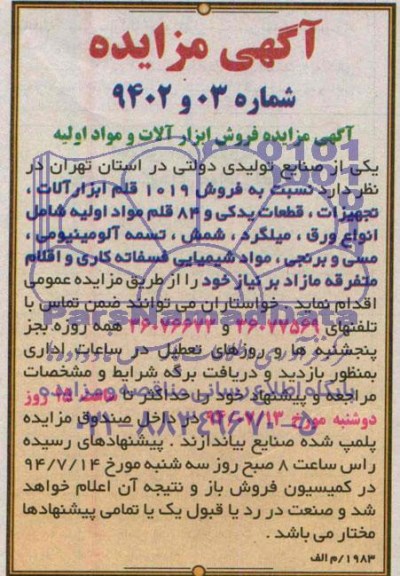 آگهی مزایده
شماره ۰۳ و ۹۴۰۲
آگهی مزایده فروش ابزار آلات و مواد اولیه
یکی از صنایع تولیدی دولتی در استان تهران در
نظر دارد نسبت به فروش ۱۰۱۹ قلم ابزارآلات ،
تجهیزات ، قطعات یدکی و ۸۴ قلم مواد اولیه شامل
انواع ورق ، میلگرد ، شمش ، تسمه آلومینیومی ،
مسی و برنجی ، مواد شیمیایی فسفاته کاری و اقلام
متفرقه مازاد بر نیاز خود را از طریق مزایده عمومی
اقدام نماید . خواستاران می توانند ضمن تماس با
تلفنهای ۳۶۰۷۷۵۶۹ و ۳۶۰۷۶۶۷۲ همه روزه بجز
پنجشنبه ها و روزهای تعطیل در ساعات اداری
بمنظور بازدید و دریافت برگه شرایط و مشخصات
مراجعه و پیشنهاد خود را حداکثر تا روز
دوشنبه مورخ ۹۴/۷/۱۳ در داخل صندوق مزایده
پلمپ شده صنایع بیاندازند . پیشنهادهای رسیده
راس ساعت ۸ صبح روز سه شنبه مورخ ۹۴/۷/۱۴
در کمیسیون فروش باز و نتیجه آن اعلام خواهد
شد و صنعت در رد یا قبول یک یا تمامی پیشنهادها
مختار می باشد .
۱۹۸۳/م الف
ParsNamadData
پایگاه اطلاع رسانی مناقصه و مزایده
۰۲۱-۸۸۳۴۹۶۷۰-۵